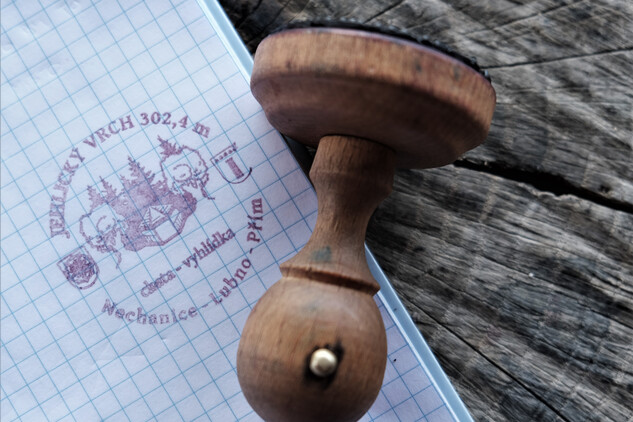 JEHLICKÝ VRCH 302,4 m
- vyhlídka
Nechanice - Lubno - Přím